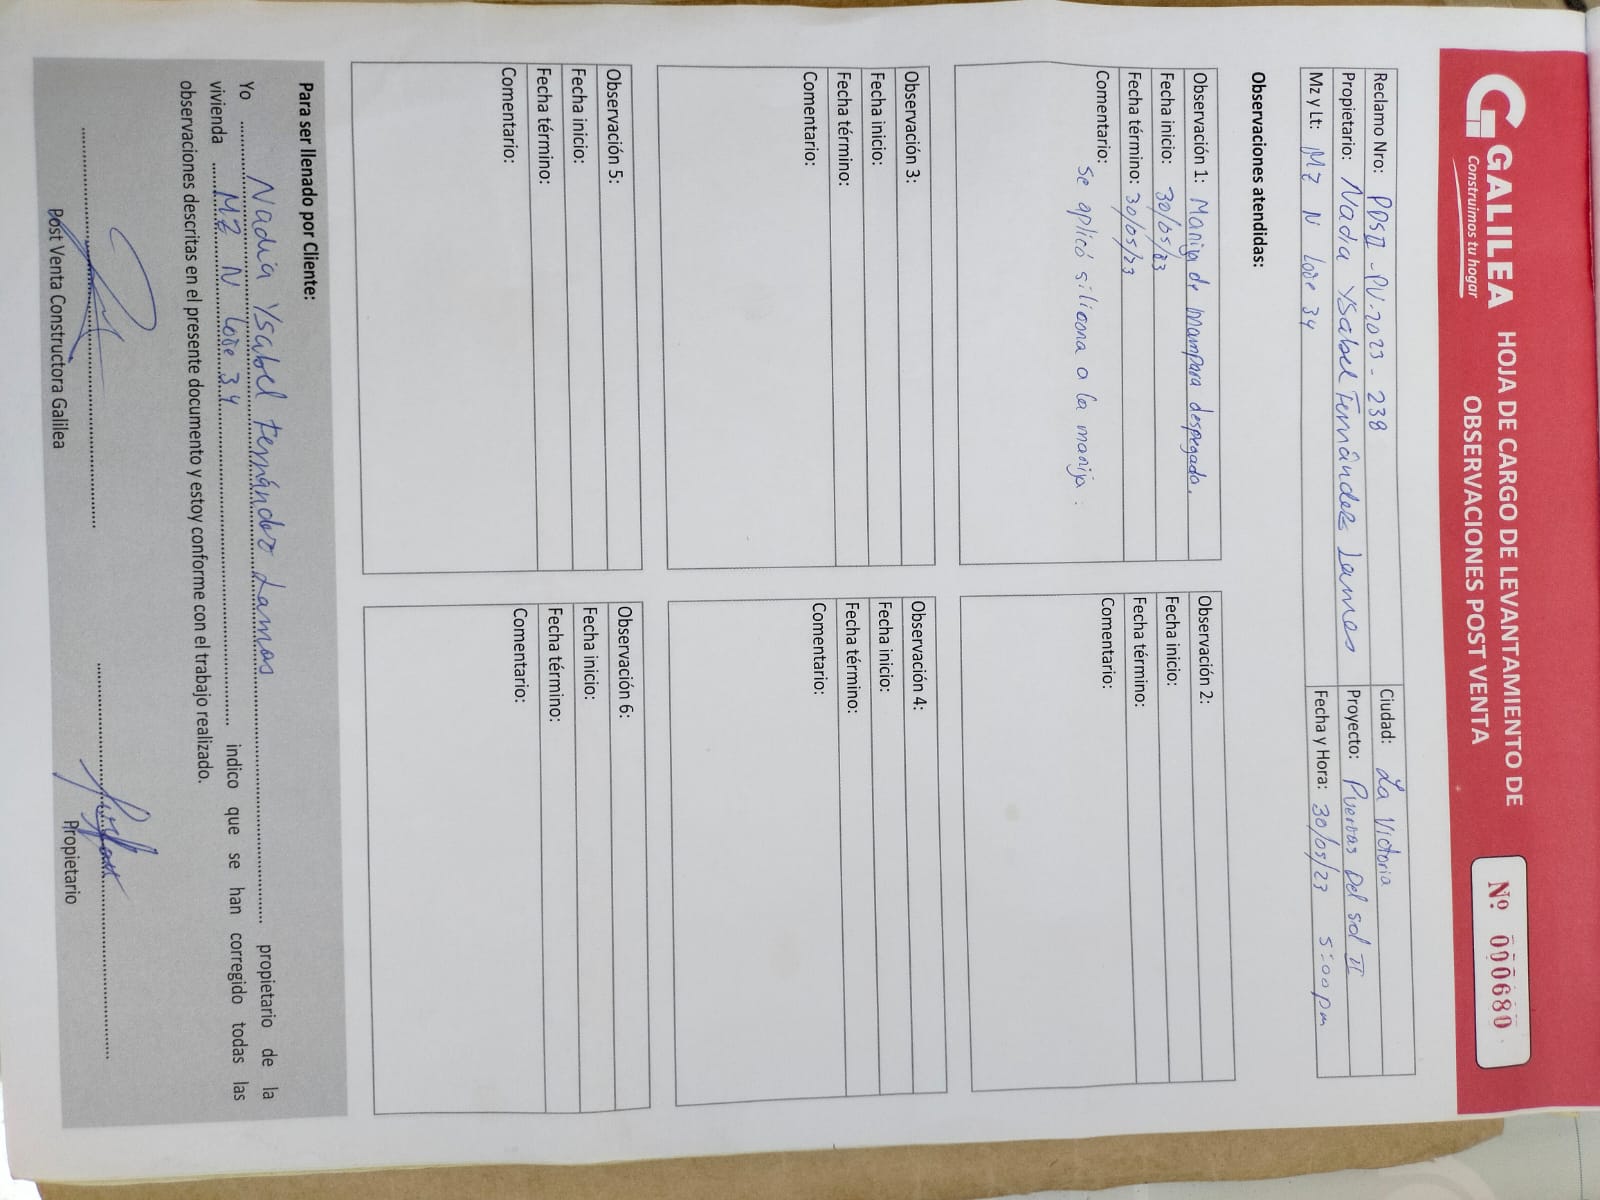 GALILEA
Construimos tu hogar
HOJA DE CARGO DE LEVANTAMIENTO DE
OBSERVACIONES POST VENTA
Nº 000680
Reclamo Nro: PDSII-PV-2023-238
Ciudad: La Victoria
Propietario: Nadia Ysabel Fernández Lamos
Proyecto: Puertas Del sol II
Mz y Lt: MZ N lote 34
Fecha y Hora: 30/05/23 5:00 pm
Observaciones atendidas:
Observación 1: Manija de mampara despegada.
Fecha inicio: 30/05/23
Fecha término: 30/05/23
Comentario: Se aplicó silicona a la manija.
Observación 2:
Fecha inicio:
Fecha término:
Comentario:
Observación 3:
Fecha inicio:
Fecha término:
Comentario:
Observación 4:
Fecha inicio:
Fecha término:
Comentario:
Observación 5:
Fecha inicio:
Fecha término:
Comentario:
Observación 6:
Fecha inicio:
Fecha término:
Comentario:
Para ser llenado por Cliente:
Yo Nadia Ysabel Fernández Lamos propietario de la
vivienda MZ N lote 34 indico que se han corregido todas las
observaciones descritas en el presente documento y estoy conforme con el trabajo realizado.
Post Venta Constructora Galilea
Propietario